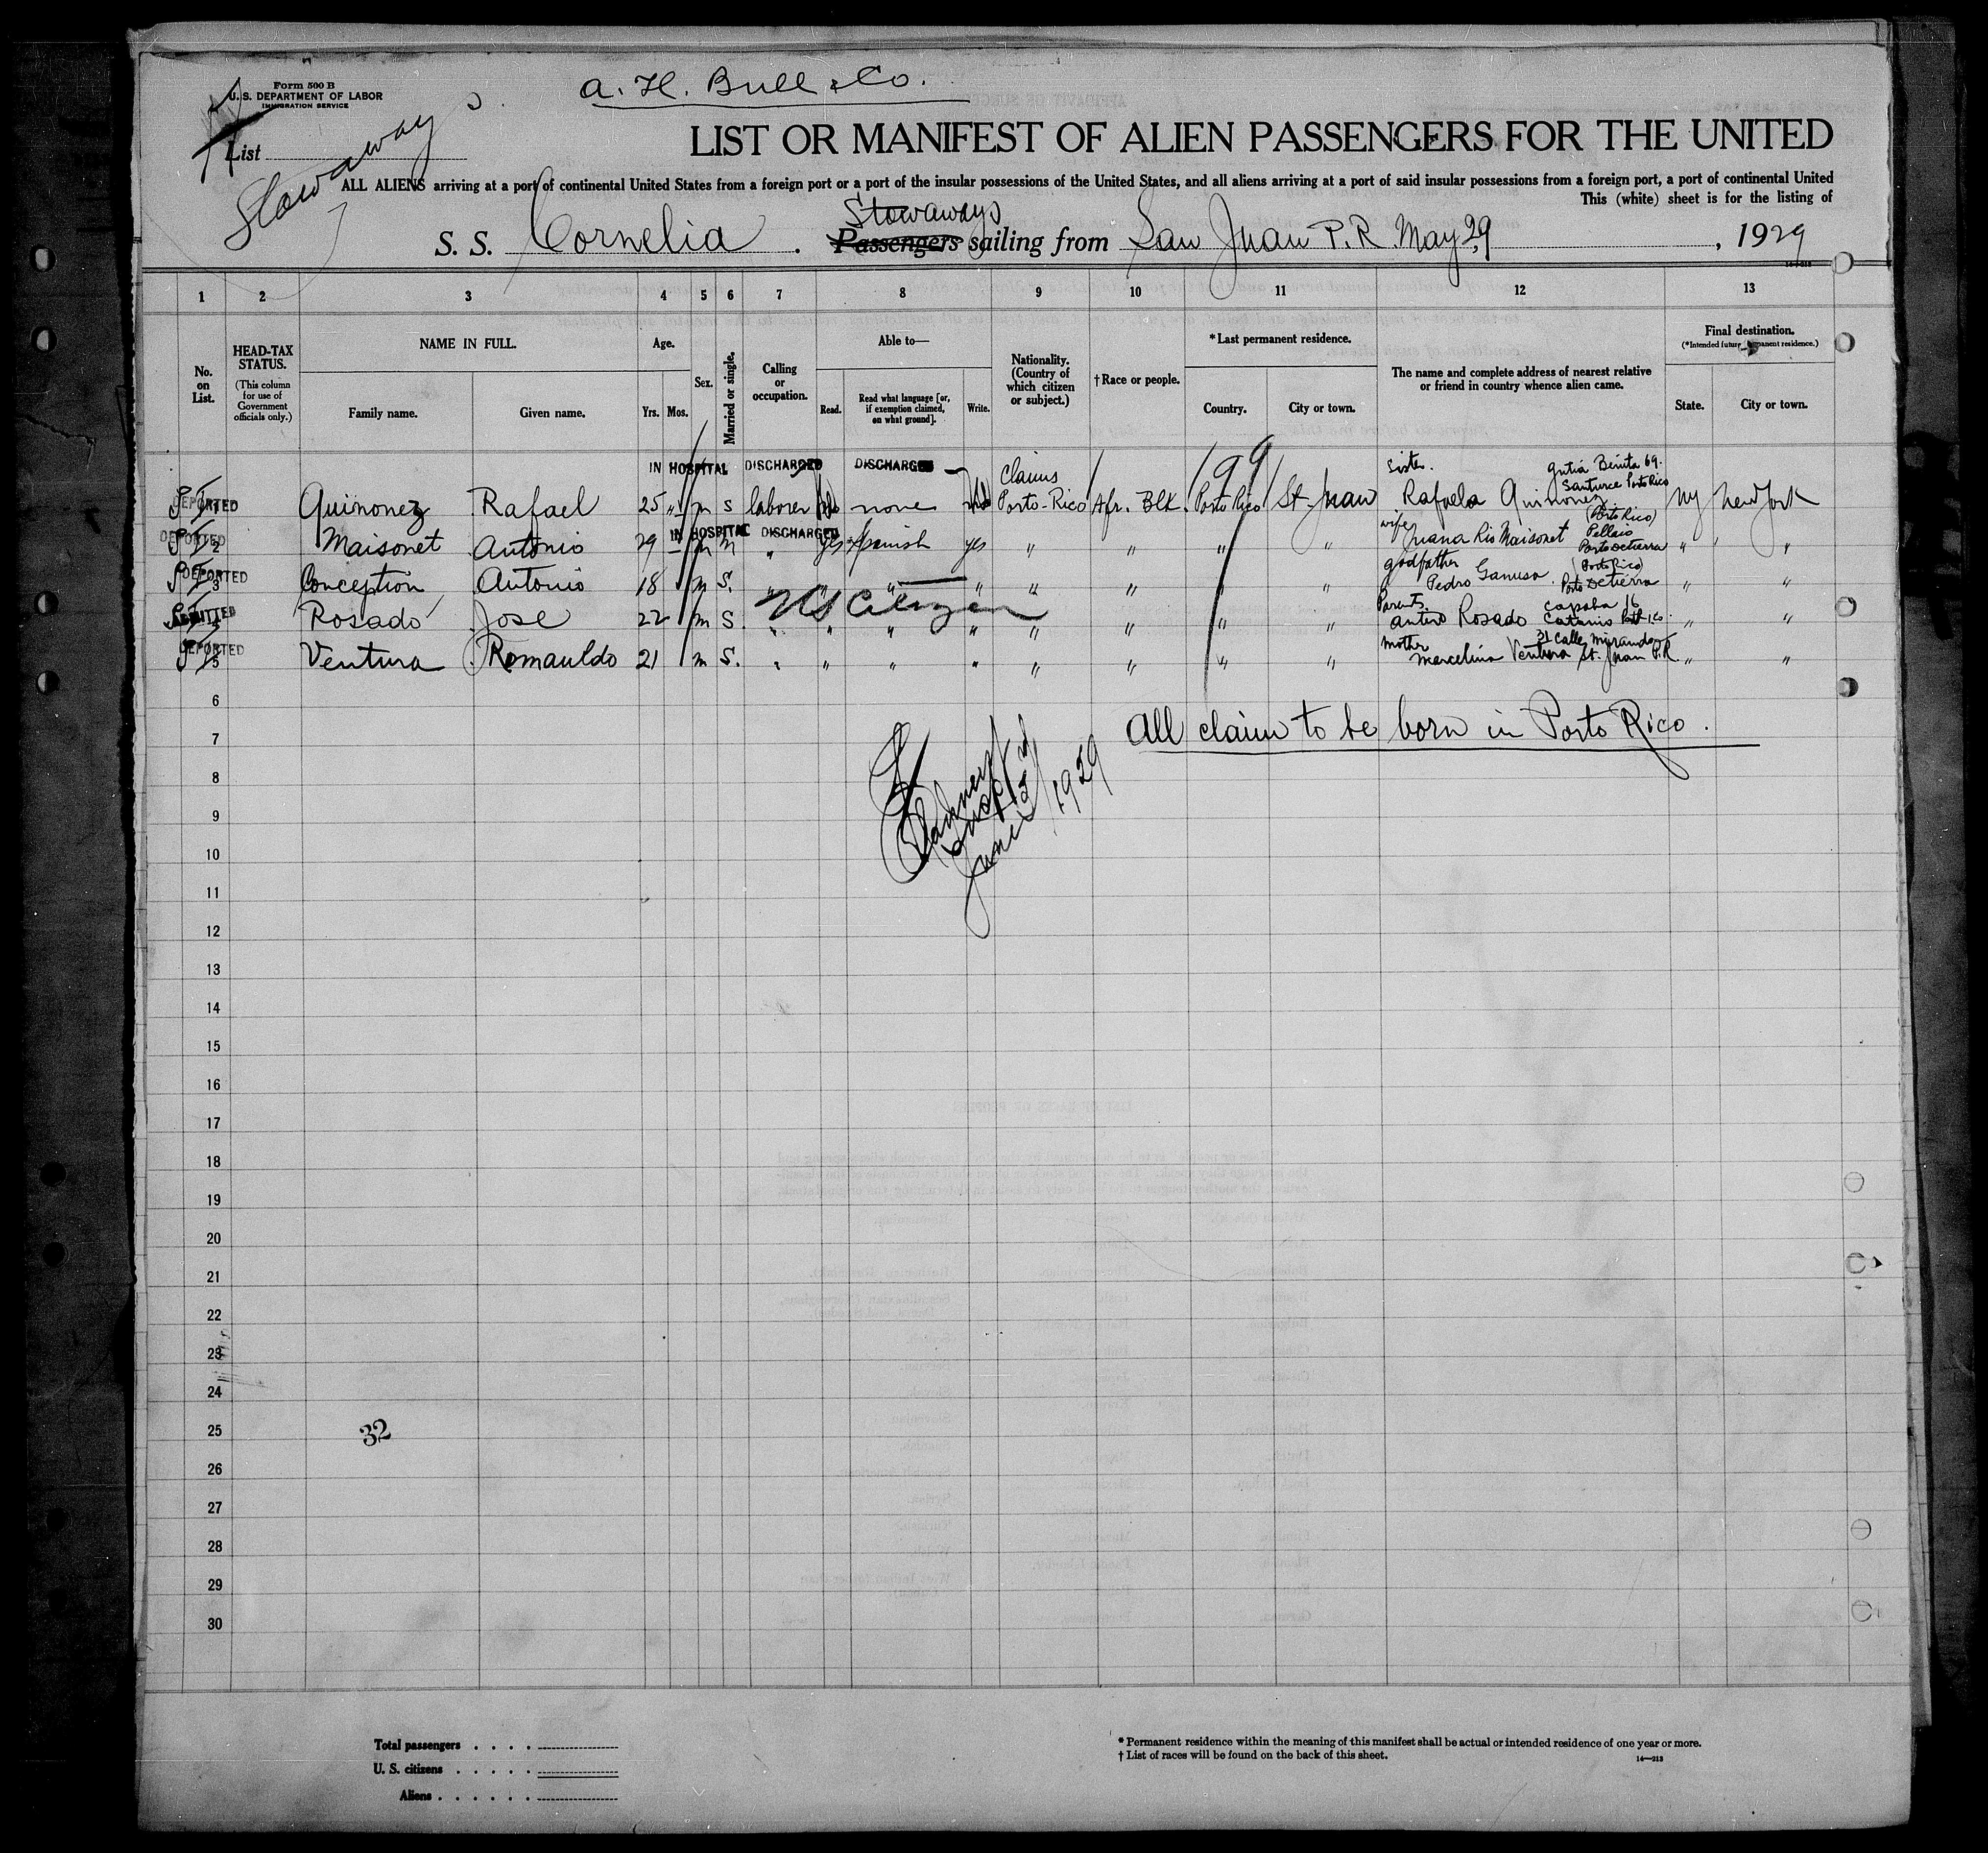 Form 500 B
U. S. DEPARTMENT OF LABOR
IMMIGRATION SERVICE
A. H. Bull & Co.
List
Stowaways
LIST OR MANIFEST OF ALIEN PASSENGERS FOR THE UNITED
ALL ALIENS arriving at a port of continental United States from a foreign port or a port of the insular possessions of the United States, and all aliens arriving at a port of said insular possessions from a foreign port, a port of continental United
This (white) sheet is for the listing of
Stowaways
S. S. Cornelia . Passengers sailing from San Juan P.R. May 29, 1929
1 2 3 4 5 6 7 8 9 10 11 12 13
No. on List.
HEAD-TAX STATUS.
(This column for use of Government officials only.)
NAME IN FULL.
Family name. Given name.
Age.
Yrs. Mos.
Sex.
Married or single.
Calling or occupation.
Able to—
Read. Read what language [or, if exemption claimed, on what ground]. Write.
Nationality. (Country of which citizen or subject.)
† Race or people.
* Last permanent residence.
Country. City or town.
The name and complete address of nearest relative or friend in country whence alien came.
Final destination.
(* Intended future permanent residence.)
State. City or town.
IN HOSPITAL DISCHARGED DISCHARGED Claims 99 sister. Benita 69. Santurce Porto Rico
DEPORTED 1 Quinonez Rafael 25 " m s laborer no none no Porto-Rico Afr. Blk. Porto Rico St. Juan Rafaela Quinonez NY New York
IN HOSPITAL DISCHARGED wife (Porto Rico)
DEPORTED 2 Maisonet Antonio 29 m m " yes Spanish yes " " " " Juana Ris Maisonet " "
godfather (Porto Rico)
DEPORTED 3 Conception Antonio 18 m S. " " " " " " " " Pedro " "
US Citizen Parents 16
ADMITTED 4 Rosado Jose 22 m S. " " " " " " " " Rosado " "
mother 31 Calle
DEPORTED 5 Ventura Romauldo 21 m S. " " " " " " " " Marcelina Ventura St. Juan P.R. " "
6
7
All claim to be born in Porto Rico.
8
9
10
June 1929
11
12
13
14
15
16
17
18
19
20
21
22
23
24
25
32
26
27
28
29
30
Total passengers . . . .
U. S. citizens . . . . .
Aliens . . . . . .
* Permanent residence within the meaning of this manifest shall be actual or intended residence of one year or more.
† List of races will be found on the back of this sheet.
14—213